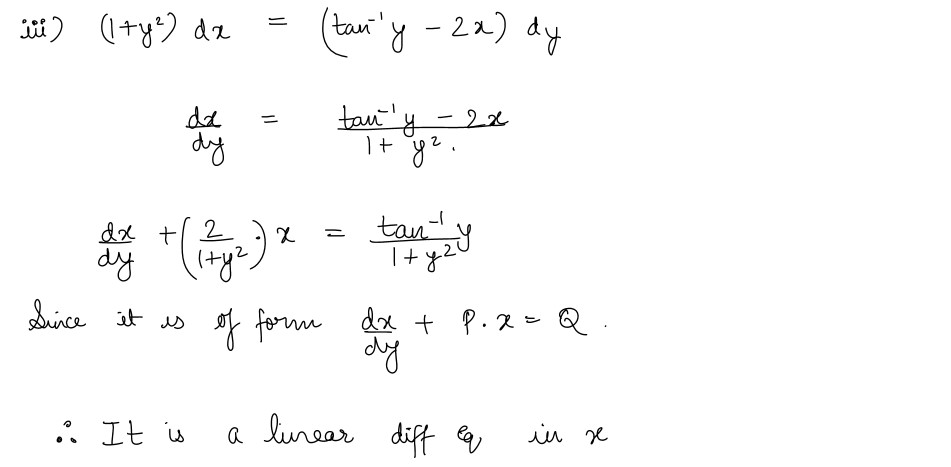 iii) (1+y²) dx = (tan⁻¹y − 2x) dy
dx/dy = (tan⁻¹y − 2x)/(1+ y².)
dx/dy + (2/(1+y²)·) x = tan⁻¹y/(1+y²)
Since it is of form dx/dy + P.x = Q .
∴ It is a linear diff Eq in x